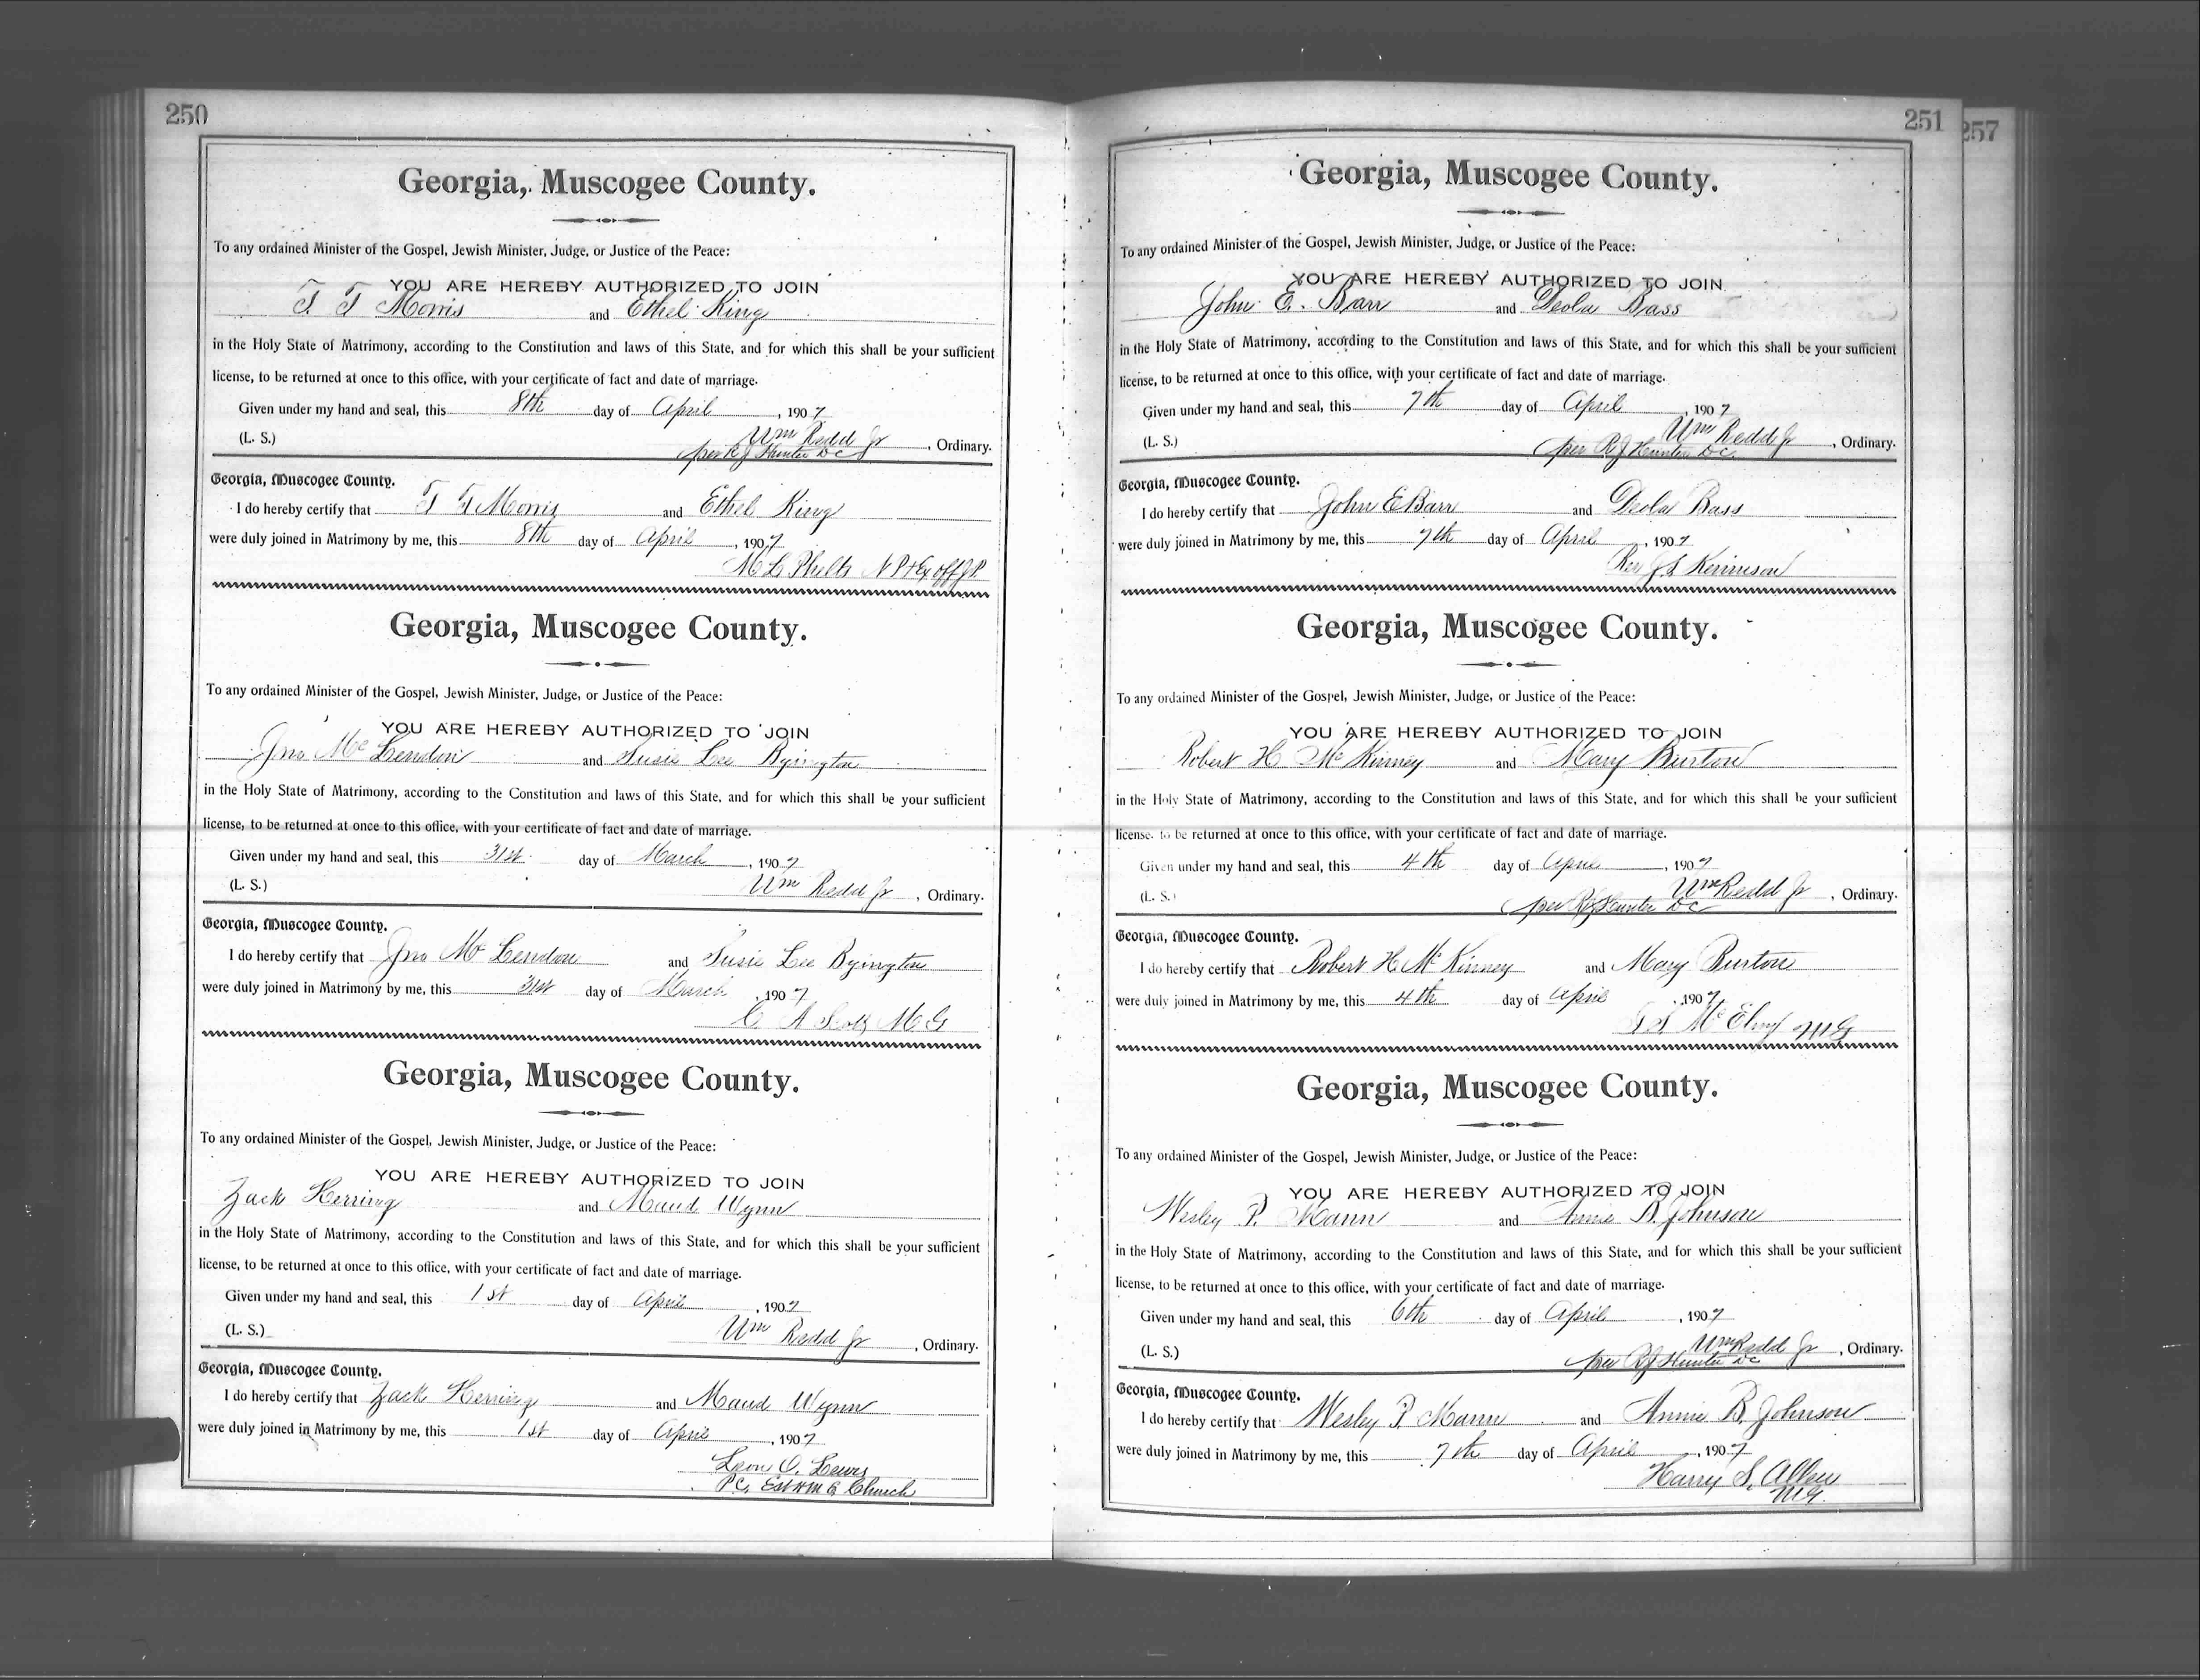 250
Georgia, Muscogee County.
To any ordained Minister of the Gospel, Jewish Minister, Judge, or Justice of the Peace:
YOU ARE HEREBY AUTHORIZED TO JOIN
T T Morris and Ethel King
in the Holy State of Matrimony, according to the Constitution and laws of this State, and for which this shall be your sufficient
license, to be returned at once to this office, with your certificate of fact and date of marriage.
Given under my hand and seal, this 8th day of April, 1907
(L. S.) Wm Redd Jr, Ordinary.
per R J Hunter D C
Georgia, Muscogee County.
I do hereby certify that T T Morris and Ethel King
were duly joined in Matrimony by me, this 8th day of April, 1907
M L Phelts N P + Ex off J P.
Georgia, Muscogee County.
To any ordained Minister of the Gospel, Jewish Minister, Judge, or Justice of the Peace:
YOU ARE HEREBY AUTHORIZED TO JOIN
Jno McLendon and Susie Lee Byington
in the Holy State of Matrimony, according to the Constitution and laws of this State, and for which this shall be your sufficient
license, to be returned at once to this office, with your certificate of fact and date of marriage.
Given under my hand and seal, this 31st day of March, 1907
(L. S.) Wm Redd Jr, Ordinary.
Georgia, Muscogee County.
I do hereby certify that Jno McLendon and Susie Lee Byington
were duly joined in Matrimony by me, this 31st day of March, 1907
C A Scott M G
Georgia, Muscogee County.
To any ordained Minister of the Gospel, Jewish Minister, Judge, or Justice of the Peace:
YOU ARE HEREBY AUTHORIZED TO JOIN
Zack Herring and Maud Wynn
in the Holy State of Matrimony, according to the Constitution and laws of this State, and for which this shall be your sufficient
license, to be returned at once to this office, with your certificate of fact and date of marriage.
Given under my hand and seal, this 1st day of April, 1907
(L. S.) Wm Redd Jr, Ordinary.
Georgia, Muscogee County.
I do hereby certify that Zack Herring and Maud Wynn
were duly joined in Matrimony by me, this 1st day of April, 1907
Leon O. Lewis
P C, Church
251
257
Georgia, Muscogee County.
To any ordained Minister of the Gospel, Jewish Minister, Judge, or Justice of the Peace:
YOU ARE HEREBY AUTHORIZED TO JOIN
John E. Barr and Deola Bass
in the Holy State of Matrimony, according to the Constitution and laws of this State, and for which this shall be your sufficient
license, to be returned at once to this office, with your certificate of fact and date of marriage.
Given under my hand and seal, this 7th day of April, 1907
(L. S.) Wm Redd Jr, Ordinary.
per R J Hunter D C.
Georgia, Muscogee County.
I do hereby certify that John E Barr and Deola Bass
were duly joined in Matrimony by me, this 7th day of April, 1907
Rev J S Kennison
Georgia, Muscogee County.
To any ordained Minister of the Gospel, Jewish Minister, Judge, or Justice of the Peace:
YOU ARE HEREBY AUTHORIZED TO JOIN
Robert H McKinney and Mary Burton
in the Holy State of Matrimony, according to the Constitution and laws of this State, and for which this shall be your sufficient
license, to be returned at once to this office, with your certificate of fact and date of marriage.
Given under my hand and seal, this 4th day of April, 1907
(L. S.) Wm Redd Jr, Ordinary.
per R J Hunter D C
Georgia, Muscogee County.
I do hereby certify that Robert H McKinney and Mary Burton
were duly joined in Matrimony by me, this 4th day of April, 1907
S McElroy M G
Georgia, Muscogee County.
To any ordained Minister of the Gospel, Jewish Minister, Judge, or Justice of the Peace:
YOU ARE HEREBY AUTHORIZED TO JOIN
Wesley P. Mann and Annie B. Johnson
in the Holy State of Matrimony, according to the Constitution and laws of this State, and for which this shall be your sufficient
license, to be returned at once to this office, with your certificate of fact and date of marriage.
Given under my hand and seal, this 6th day of April, 1907
(L. S.) Wm Redd Jr, Ordinary.
per R J Hunter D C
Georgia, Muscogee County.
I do hereby certify that Wesley P. Mann and Annie B. Johnson
were duly joined in Matrimony by me, this 7th day of April, 1907
Harry S. Allen
M G.